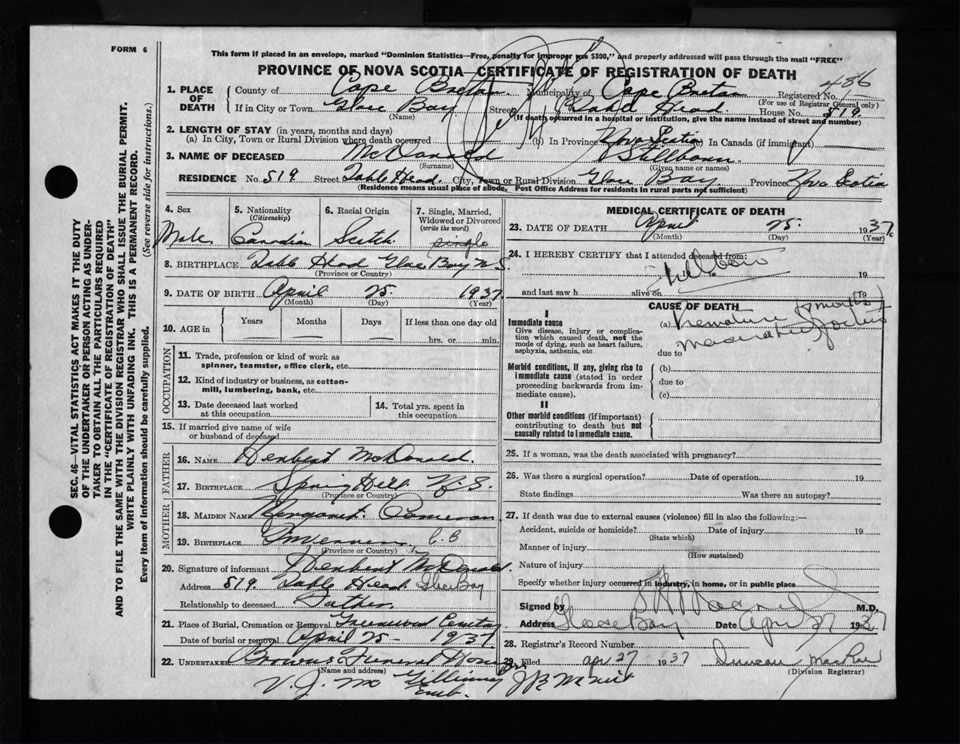 FORM 6
This form if placed in an envelope, marked "Dominion Statistics—Free, penalty for improper use $300," and properly addressed will pass through the mail "FREE"
PROVINCE OF NOVA SCOTIA—CERTIFICATE OF REGISTRATION OF DEATH
1. PLACE OF DEATH
County of Cape Breton Municipality of Cape Breton Registered No. 486
(For use of Registrar General only)
If in City or Town Glace Bay Street Table Head House No. 519
(Name) (If death occurred in a hospital or institution, give the name instead of street and number)
2. LENGTH OF STAY (in years, months and days)
(a) In City, Town or Rural Division where death occurred (b) In Province Nova Scotia In Canada (if immigrant)
3. NAME OF DECEASED McDonald Stillborn
(Surname) (Given name or names)
RESIDENCE No. 519 Street Table Head City, Town or Rural Division Glace Bay Province Nova Scotia
(Residence means usual place of abode, Post Office Address for residents in rural parts not sufficient)
SEC. 46—VITAL STATISTICS ACT MAKES IT THE DUTY
OF THE UNDERTAKER OR PERSON ACTING AS UNDER-
TAKER TO OBTAIN ALL THE PARTICULARS REQUIRED
IN THE "CERTIFICATE OF REGISTRATION OF DEATH"
AND TO FILE THE SAME WITH THE DIVISION REGISTRAR WHO SHALL ISSUE THE BURIAL PERMIT.
WRITE PLAINLY WITH UNFADING INK. THIS IS A PERMANENT RECORD.
Every item of information should be carefully supplied. (See reverse side for instructions.)
4. Sex Male
5. Nationality (Citizenship) Canadian
6. Racial Origin Scotch
7. Single, Married, Widowed or Divorced (write the word) single
8. BIRTHPLACE Table Head Glace Bay N S
(Province or Country)
9. DATE OF BIRTH April 25 1937
(Month) (Day) (Year)
10. AGE in Years Months Days If less than one day old
hrs. or min.
OCCUPATION
11. Trade, profession or kind of work as spinner, teamster, office clerk, etc.
12. Kind of industry or business, as cotton-mill, lumbering, bank, etc.
13. Date deceased last worked at this occupation
14. Total yrs. spent in this occupation
15. If married give name of wife or husband of deceased
FATHER
16. NAME Herbert McDonald
17. BIRTHPLACE Spring Hill N. S.
(Province or Country)
MOTHER
18. MAIDEN NAME Margaret Cameron
19. BIRTHPLACE Inverness C.B
(Province or Country)
20. Signature of informant Herbert McDonald
Address 519 Table Head Glace Bay
Relationship to deceased Father
21. Place of Burial, Cremation or Removal Greenwood Cemetery
Date of burial or removal April 25- 1937
22. UNDERTAKER Browns Funeral Home
(Name and address)
V. J. Mc Gillivray Emb.
MEDICAL CERTIFICATE OF DEATH
23. DATE OF DEATH April 25 1937
(Month) (Day) (Year)
24. I HEREBY CERTIFY that I attended deceased from
Stillborn 19
and last saw h alive on 19
CAUSE OF DEATH
I
Immediate cause
Give disease, injury or complication which caused death, not the mode of dying, such as heart failure, asphyxia, asthenia, etc.
(a) Premature
due to
Morbid conditions, if any, giving rise to immediate cause (stated in order proceeding backwards from immediate cause).
(b)
due to
(c)
II
Other morbid conditions (if important) contributing to death but not causally related to immediate cause.
25. If a woman, was the death associated with pregnancy?
26. Was there a surgical operation? Date of operation 19
State findings Was there an autopsy?
27. If death was due to external causes (violence) fill in also the following:—
Accident, suicide or homicide? Date of injury 19
(State which)
Manner of injury
(How sustained)
Nature of injury
Specify whether injury occurred in industry, in home, or in public place
Signed by M.D.
Address Glace Bay Date Apr 27 1937
28. Registrar's Record Number
29. Filed apr 27 1937 Duncan MacRae
(Division Registrar)